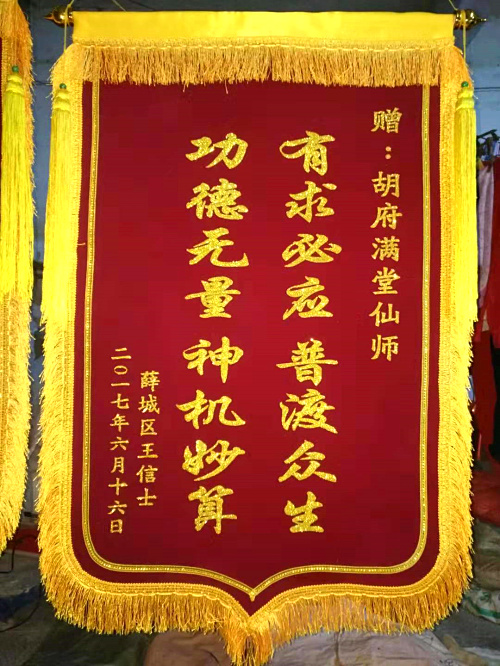 赠：胡府满堂仙师
有求必应 普渡众生
功德无量 神机妙算
薛城区王信士
二〇一七年六月十六日